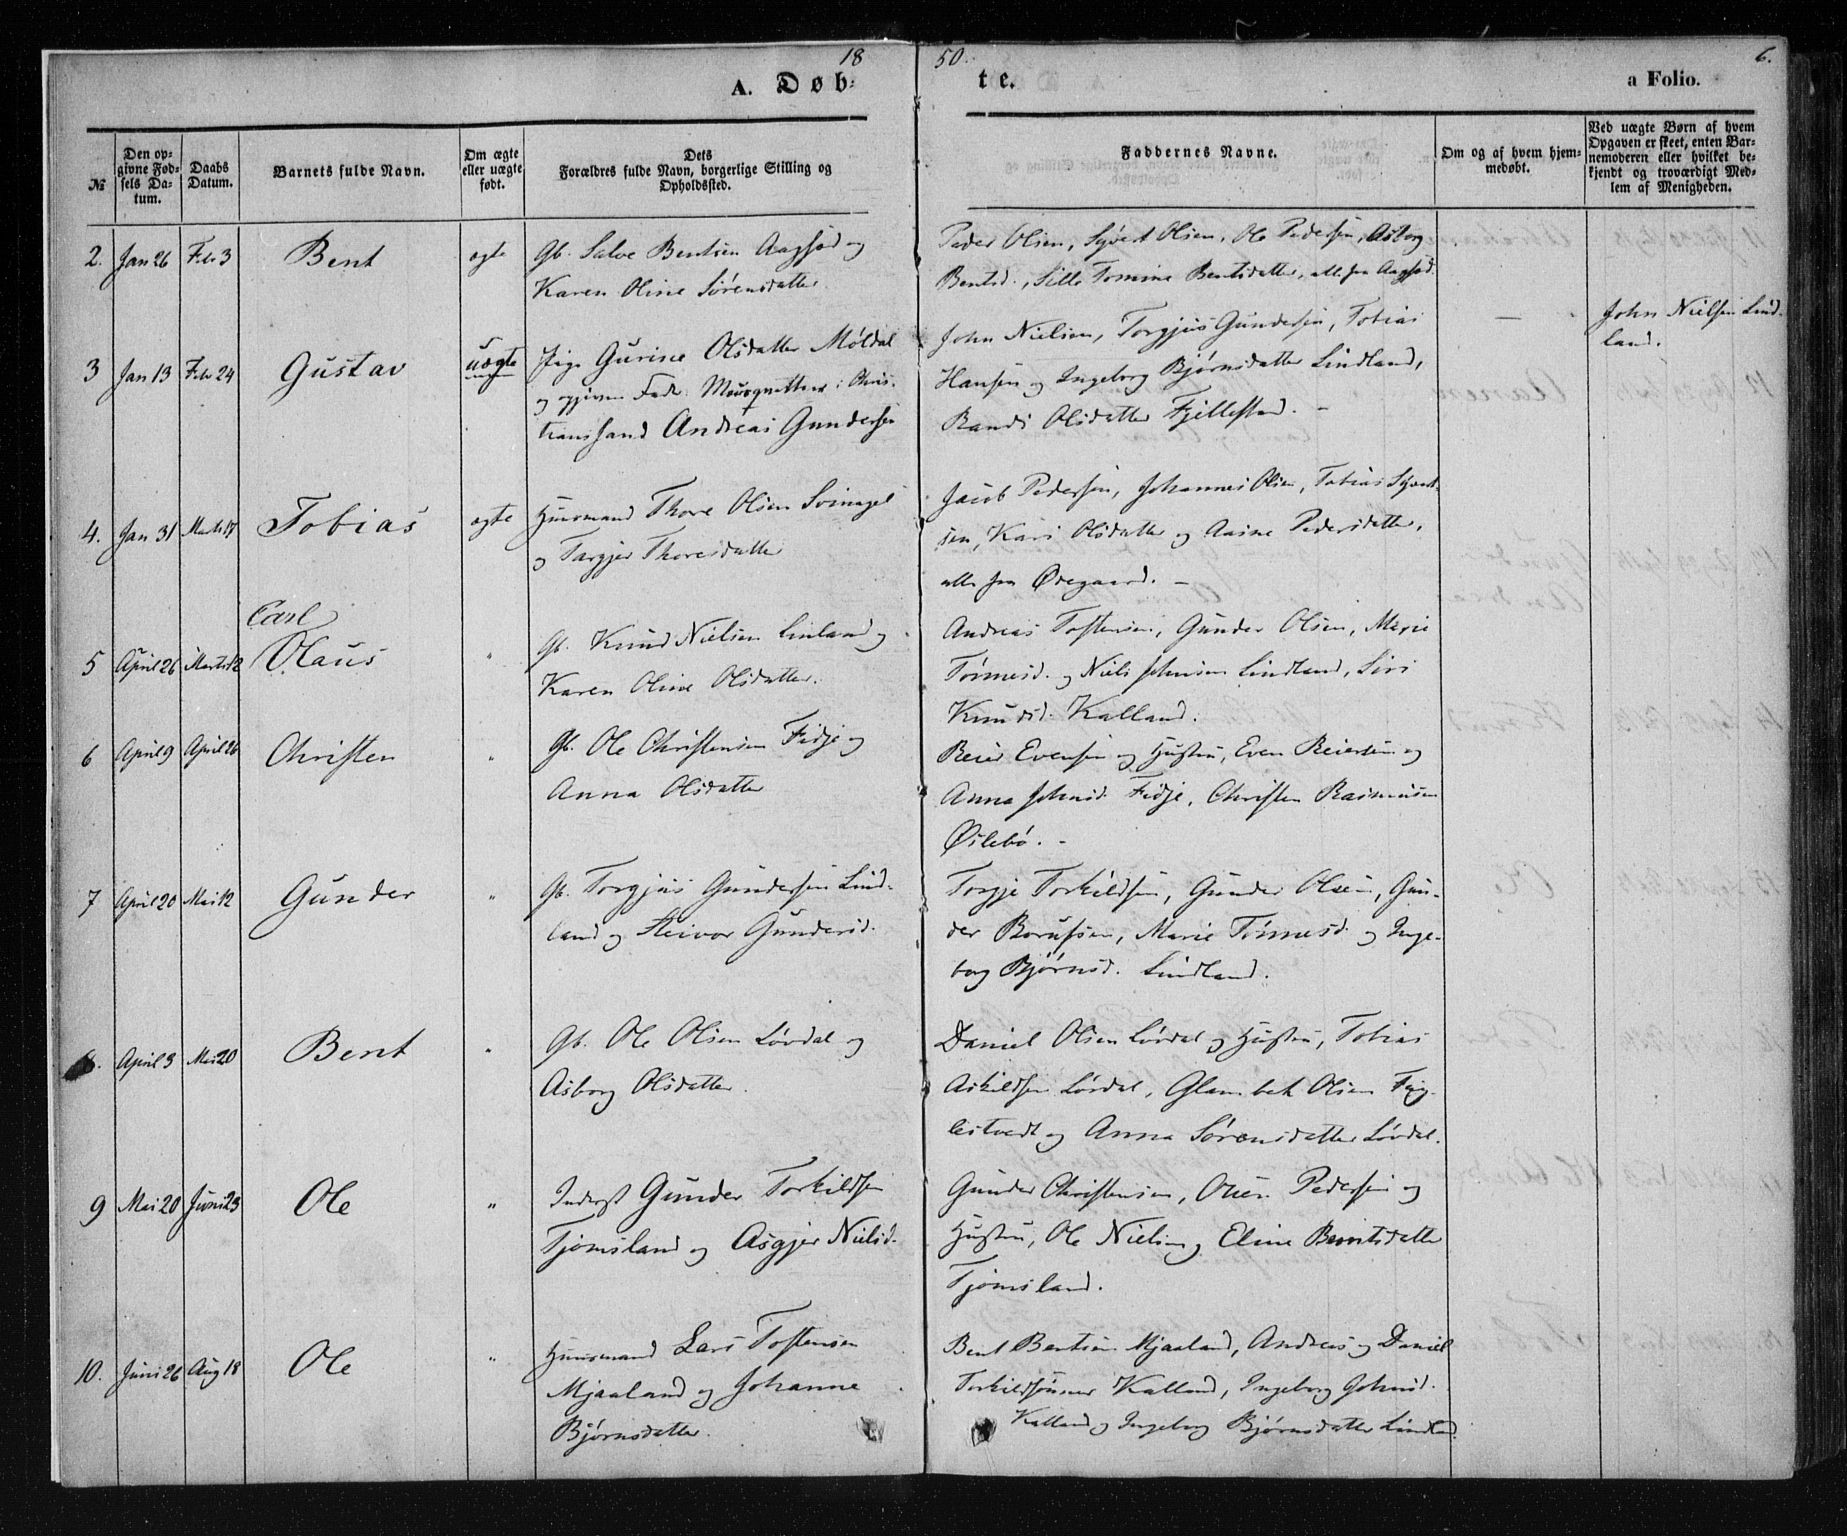 18 50. 6.
A. Døbte. a Folio.
№
Den opgivne Fødsels Datum.
Daabs Datum.
Barnets fulde Navn.
Om ægte eller uægte født.
Dets Forældres fulde Navn, borgerlige Stilling og Opholdssted.
Faddernes Navne.
Om og af hvem hjemmedøbt.
Ved uægte Børn af hvem Opgaven er skeet, enten Barnemoderen eller hvilket bekjendt og troværdigt Medlem af Menigheden.
2. Jan 26 Feb 3 Bent ægte Gb. Salve Bentsen Aagsød og
Karen Oline Sørensdatter
Peder Olsen, Syvert Olsen, Ole Pedersen, Asborg
Bentsd., Sille Tomine Bentsdatter, alle fra Aagsød.
3 Jan 13 Feb 24 Gustav uægte Pige Gurine Olsdatter Møldal
og opgiven Fader Mousquetteer i Chris-
tianssand Andreas Gundersen
John Nielsen, Torgjus Gundersen, Tobias
Hansen og Ingeborg Bjørnsdatter Lindland,
Randi Olsdatter Fjellestad. –
— John Nielsen Lind-
land.
4. Jan 31 Marts 17 Tobias ægte Huusmand Thore Olsen
og Targjer Thoresdatter
Jacob Pedersen, Johannes Olsen, Tobias Syvert-
sen, Kari Olsdatter og Aasne Pedersdatter,
alle fra Øvegaard. –
5 April 26 Marts 12 Carl
Olaus " Gb. Knud Nielsen Linland og
Karen Oline Olsdatter.
Andreas Tostensen, Gunder Olsen, Marie
Tønnesd. og Niels Johnsen Lindland, Siri
Knudsd. Kalland.
6 April 9 April 26 Christen " Gb. Ole Christensen Fidje og
Anna Olsdatter
Reier Evensen og Hustru, Even Reiersen og
Anna Johnsd. Fidje, Christen Rasmusen
Øilebø. –
7 April 20 Mai 12 Gunder " Gb. Torgjus Gundersen Lind-
land og Steinvor Gundersd.
Torgje Torkildsen, Gunder Olsen, Gun-
der Borufsen, Marie Tønnesd. og Inge-
borg Bjørnsd. Lindland.
8. April 3 Mai 20 Bent " Gb. Ole Olsen Løvdal og
Asborg Olsdatter.
Daniel Olsen Løvdal og Hustru, Tobias
Askildsen Løvdal, Glambek Olsen Fug-
lestvedt og Anna Sørensdatter Løvdal.
9 Mai 20 Juni 23 Ole " Inderst Gunder Torkildsen
Tjomsland og Asgjer Nielsd.
Gunder Christensen, Pedersen og
Hustru, Ole Nielsen og Eline Berntsdatter
Tjomsland.
10. Juni 26 Aug 18 Ole " Huusmand Lars Tostensen
Mjaaland og Johanne
Bjørnsdatter.
Bent Bentsen Mjaaland, Andreas og Daniel
Torkildsønner Kalland, Ingeborg Johnsd.
Kalland og Ingeborg Bjørnsdatter Lindland.